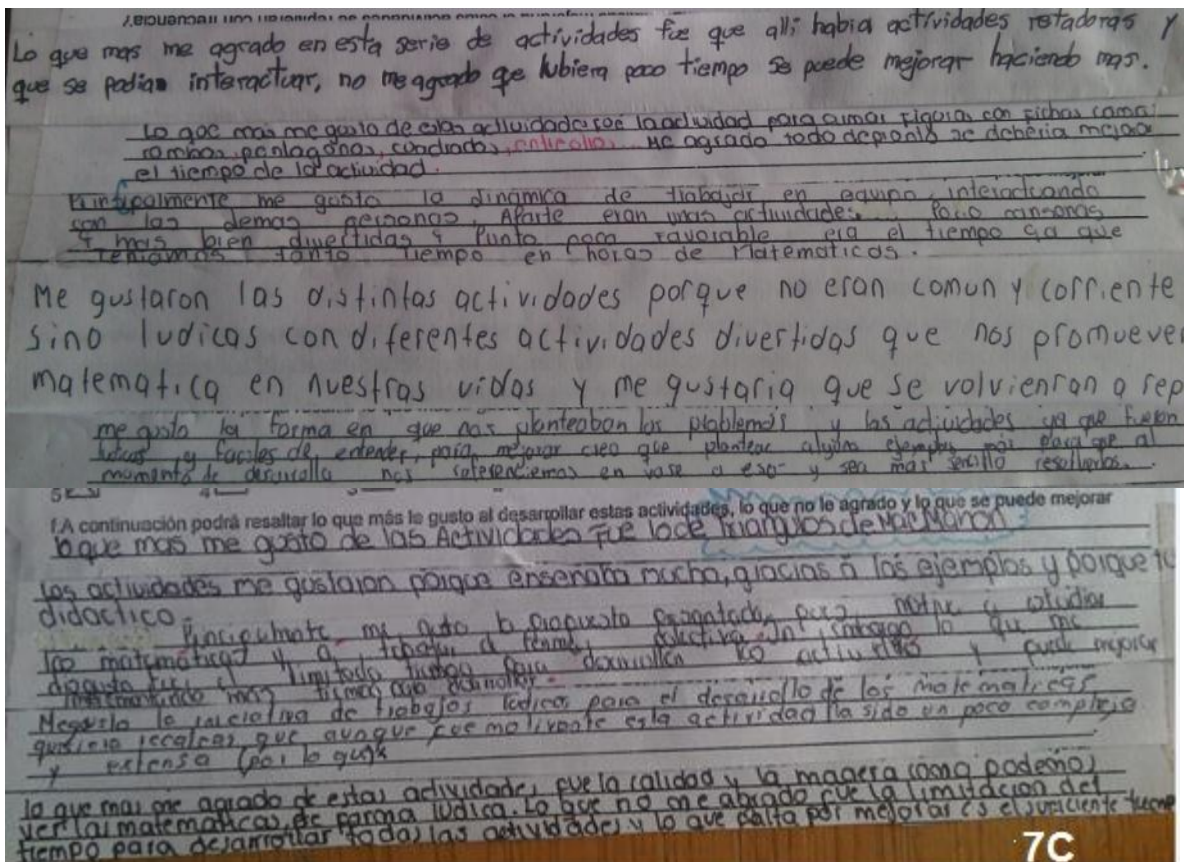 Lo que mas me agrado en esta serie de actividades fue que alli habia actividades retadoras y
que se podian interactuar, no me agrado qe hubiera poco tiempo se puede mejorar haciendo mas.
Lo que mas me gusto de estas actividades fue la actividad para armar figura con fichas como:
rombos, pentagonos, cuadrados, Me agrado todo deberia mejorar
el tiempo de la actividad.
Principalmente me gusto la dinámica de trabajar en equipo, interactuando
con las demas personas, Aparte eran unas actividades. Poco cansonas
y mas bien divertidas y Punto poco favorable era el tiempo ya que
teniamos tanto tiempo en horas de Matematicas.
Me gustaron las distintas actividades porque no eran comun y corriente
sino ludicas con diferentes actividades divertidas que nos promueven
matematica en nuestras vidas y me gustaria que se volvienran a rep
me gusto la forma en que nos planteaban los problemas y las actividades ya que fueron
ludicas y faciles de entender, para mejorar creo que plantear algunos ejemplos más para que al
momento de desarrollo nos referenciemos en vase a eso y sea mas sencillo resolverlos.
f.A continuación podrá resaltar lo que más le gusto al desarrollar estas actividades, lo que no le agrado y lo que se puede mejorar
lo que mas me gosto de las Actividades fue lo de Triangulos de Mac Mahon
Las actividades me gustaron porque enseñaba mucho, gracias a los ejemplos y porque
didactico.
Principalmente me gusto la propuesta para estudiar
las matemáticas y a trabajar de forma lo que me
disgusto fue el limitado tiempo para desarrollar actividad y puede mejorar
mas tiempo para desarrollar.
Me gusto la iniciativa de trabajos ludicos para el desarrollo de las matematicas
quisiera recalcar que aunque fue motivante esta actividad ha sido un poco compleja
y extensa
lo que mas me agrado de estas actividades fue la calidad y la manera como podemos
ver las matematicas de forma ludica. Lo que no me abrado fue la limitacion del
tiempo para desarrollar todas las actividades y lo que falta por mejorar es el suficiente tiempo
7C